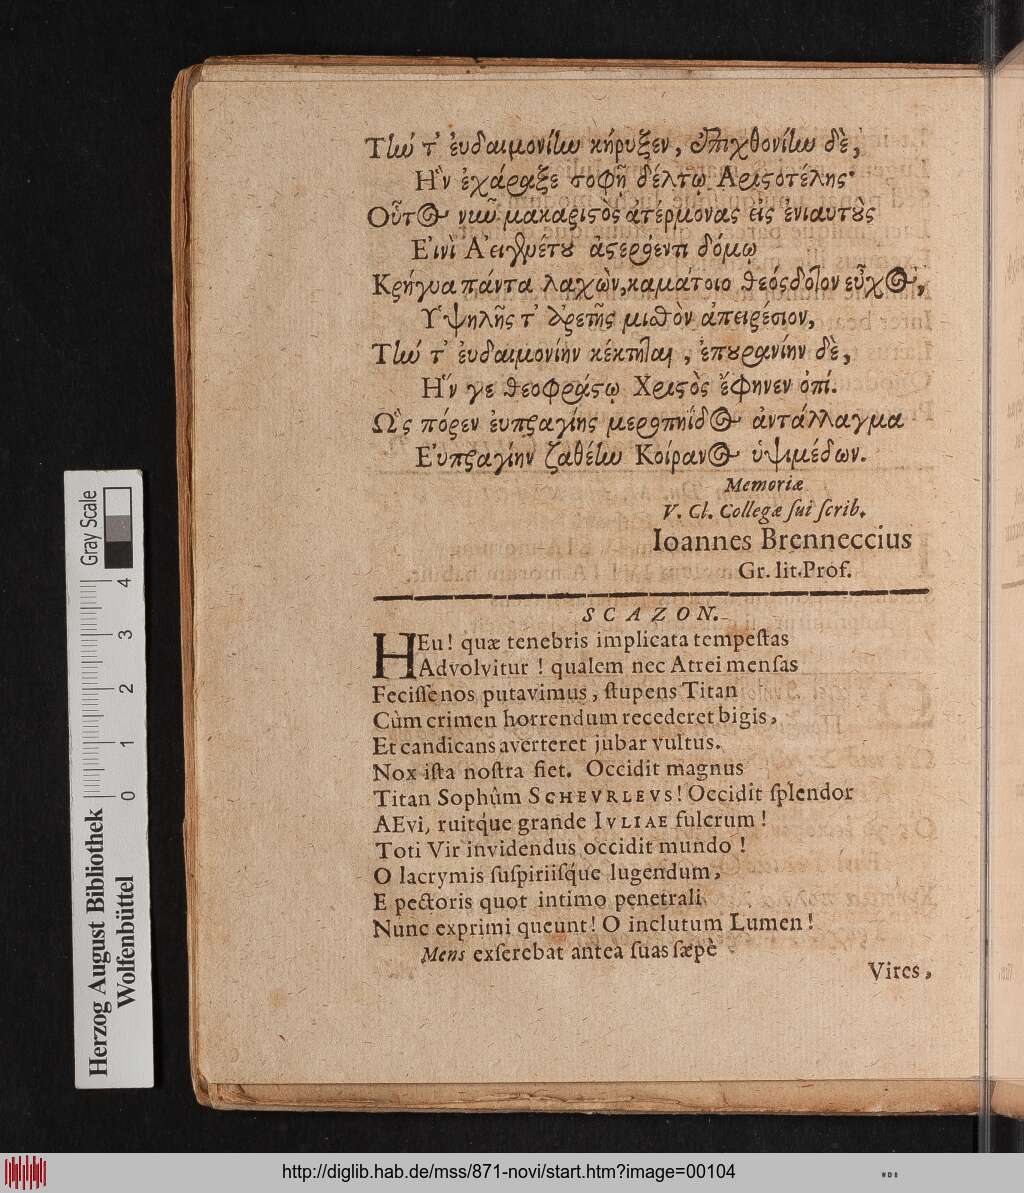 Τὼ τ' ἐυδαιμονίω κήρυξεν, ἐπιχθονίω δὲ,
Ἣν ἐχάραξε σοφῇ δέλτῳ Αριϛοτέλης·
Οὗτος νυῦ μακαριϛὸς ἀτέρμονας εἰς ἐνιαυτοὺς
Εἰνὶ Α'ειγρέτου ἀϛερόεντι δόμῳ
Κρήγυα πάντα λαχὼν, καμάτοιο θεόσδοτον εὖχος,
Ὑψηλῆς τ' ἀρετῆς μισθὸν ἀπειρέσιον,
Τὼ τ' ἐυδαιμονίην κέκτηται, ἐπουρανίην δὲ,
Ἥν γε θεοφράϛῳ Χριϛὸς ἔφηνεν ὀπί.
Ὣς πόρεν ἐυπραγίης μεροπηΐδος ἀντάλλαγμα
Εὐπραγίην ζαθέω Κοίρανος ὑψιμέδων.
Memoriæ
V. Cl. Collegæ ſui ſcrib.
Ioannes Brenneccius
Gr. lit. Prof.
SCAZON.
HEu! quæ tenebris implicata tempeſtas
Advolvitur! qualem nec Atrei menſas
Feciſſe nos putavimus, ſtupens Titan
Cùm crimen horrendum recederet bigis,
Et candicans averteret jubar vultus.
Nox iſta noſtra fiet. Occidit magnus
Titan Sophûm SCHEVRLEVS! Occidit ſplendor
AEvi, ruitq́ue grande IVLIAE fulcrum!
Toti Vir invidendus occidit mundo!
O lacrymis ſuſpiriiſq́ue lugendum,
E pectoris quot intimo penetrali
Nunc exprimi queunt! O inclutum Lumen!
Mens exſerebat antea ſuas ſæpè
Vires,
Gray Scale
4
3
2
1
0
Herzog August Bibliothek
Wolfenbüttel
http://diglib.hab.de/mss/871-novi/start.htm?image=00104